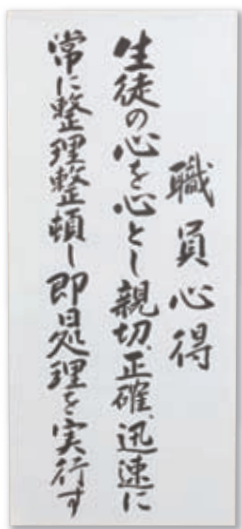 職員心得
生徒の心を心とし親切、正確、迅速に
常に整理整頓し即日処理を実行す